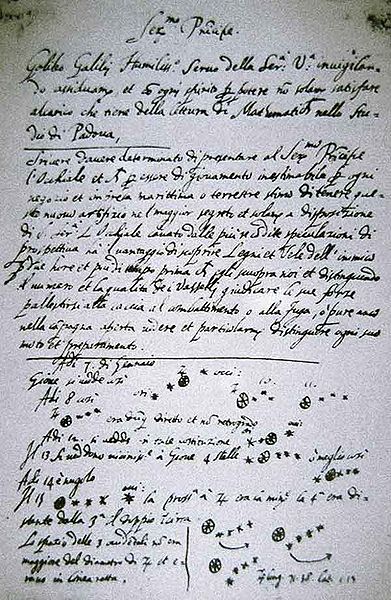 Ser.mo Principe.
Galileo Galilej Humiliss.o Servo della Ser.a V.a invigilan-
do assiduamente, et con ogni spirito per potere non solamente satisfare
alcarico che tiene della lettura di Mathematiche nello Stu-
dio di Padova,
Scrivere davere determinato di presentare al Ser.mo Principe
l'Occhiale et per essere di giovamento inestimabile per ogni
negozio et impresa marittima o terrestre stimo di tenere que-
sto nuovo artifizio nel maggior segreto et solamente a disposizione
di S. Ser.a L'Occhiale cavato dalle più recondite speculazioni di
prospettiva ha il vantaggio di scoprire Legni et Vele dell'inimico
per due hore et più di tempo prima che egli scuopra noi et distinguendo
il numero et la qualità dei Vasselli giudicare le sue forze
pallestirsi alla caccia al combattimento o alla fuga, o pure anco
nella campagna aperta vedere et particolarmente distinguere ogni suo
moto et preparamento.
Adi 7. di Gennaio
Giove si vedde così
Adi 8 così
era diretto et non retrogrado
Adi 12. si vedde in tale costituzione
Il 13 si veddono vicinissime a Giove 4 stelle meglio così
Adi 14 è nugolo
Il 15 la prossima a 4 era la minore la 4.a era di-
stante dalla 3.a il doppio circa
Lo spazio delle 3 occidentali non era
maggiore del diametro di 4 et e-
rano in linea retta.